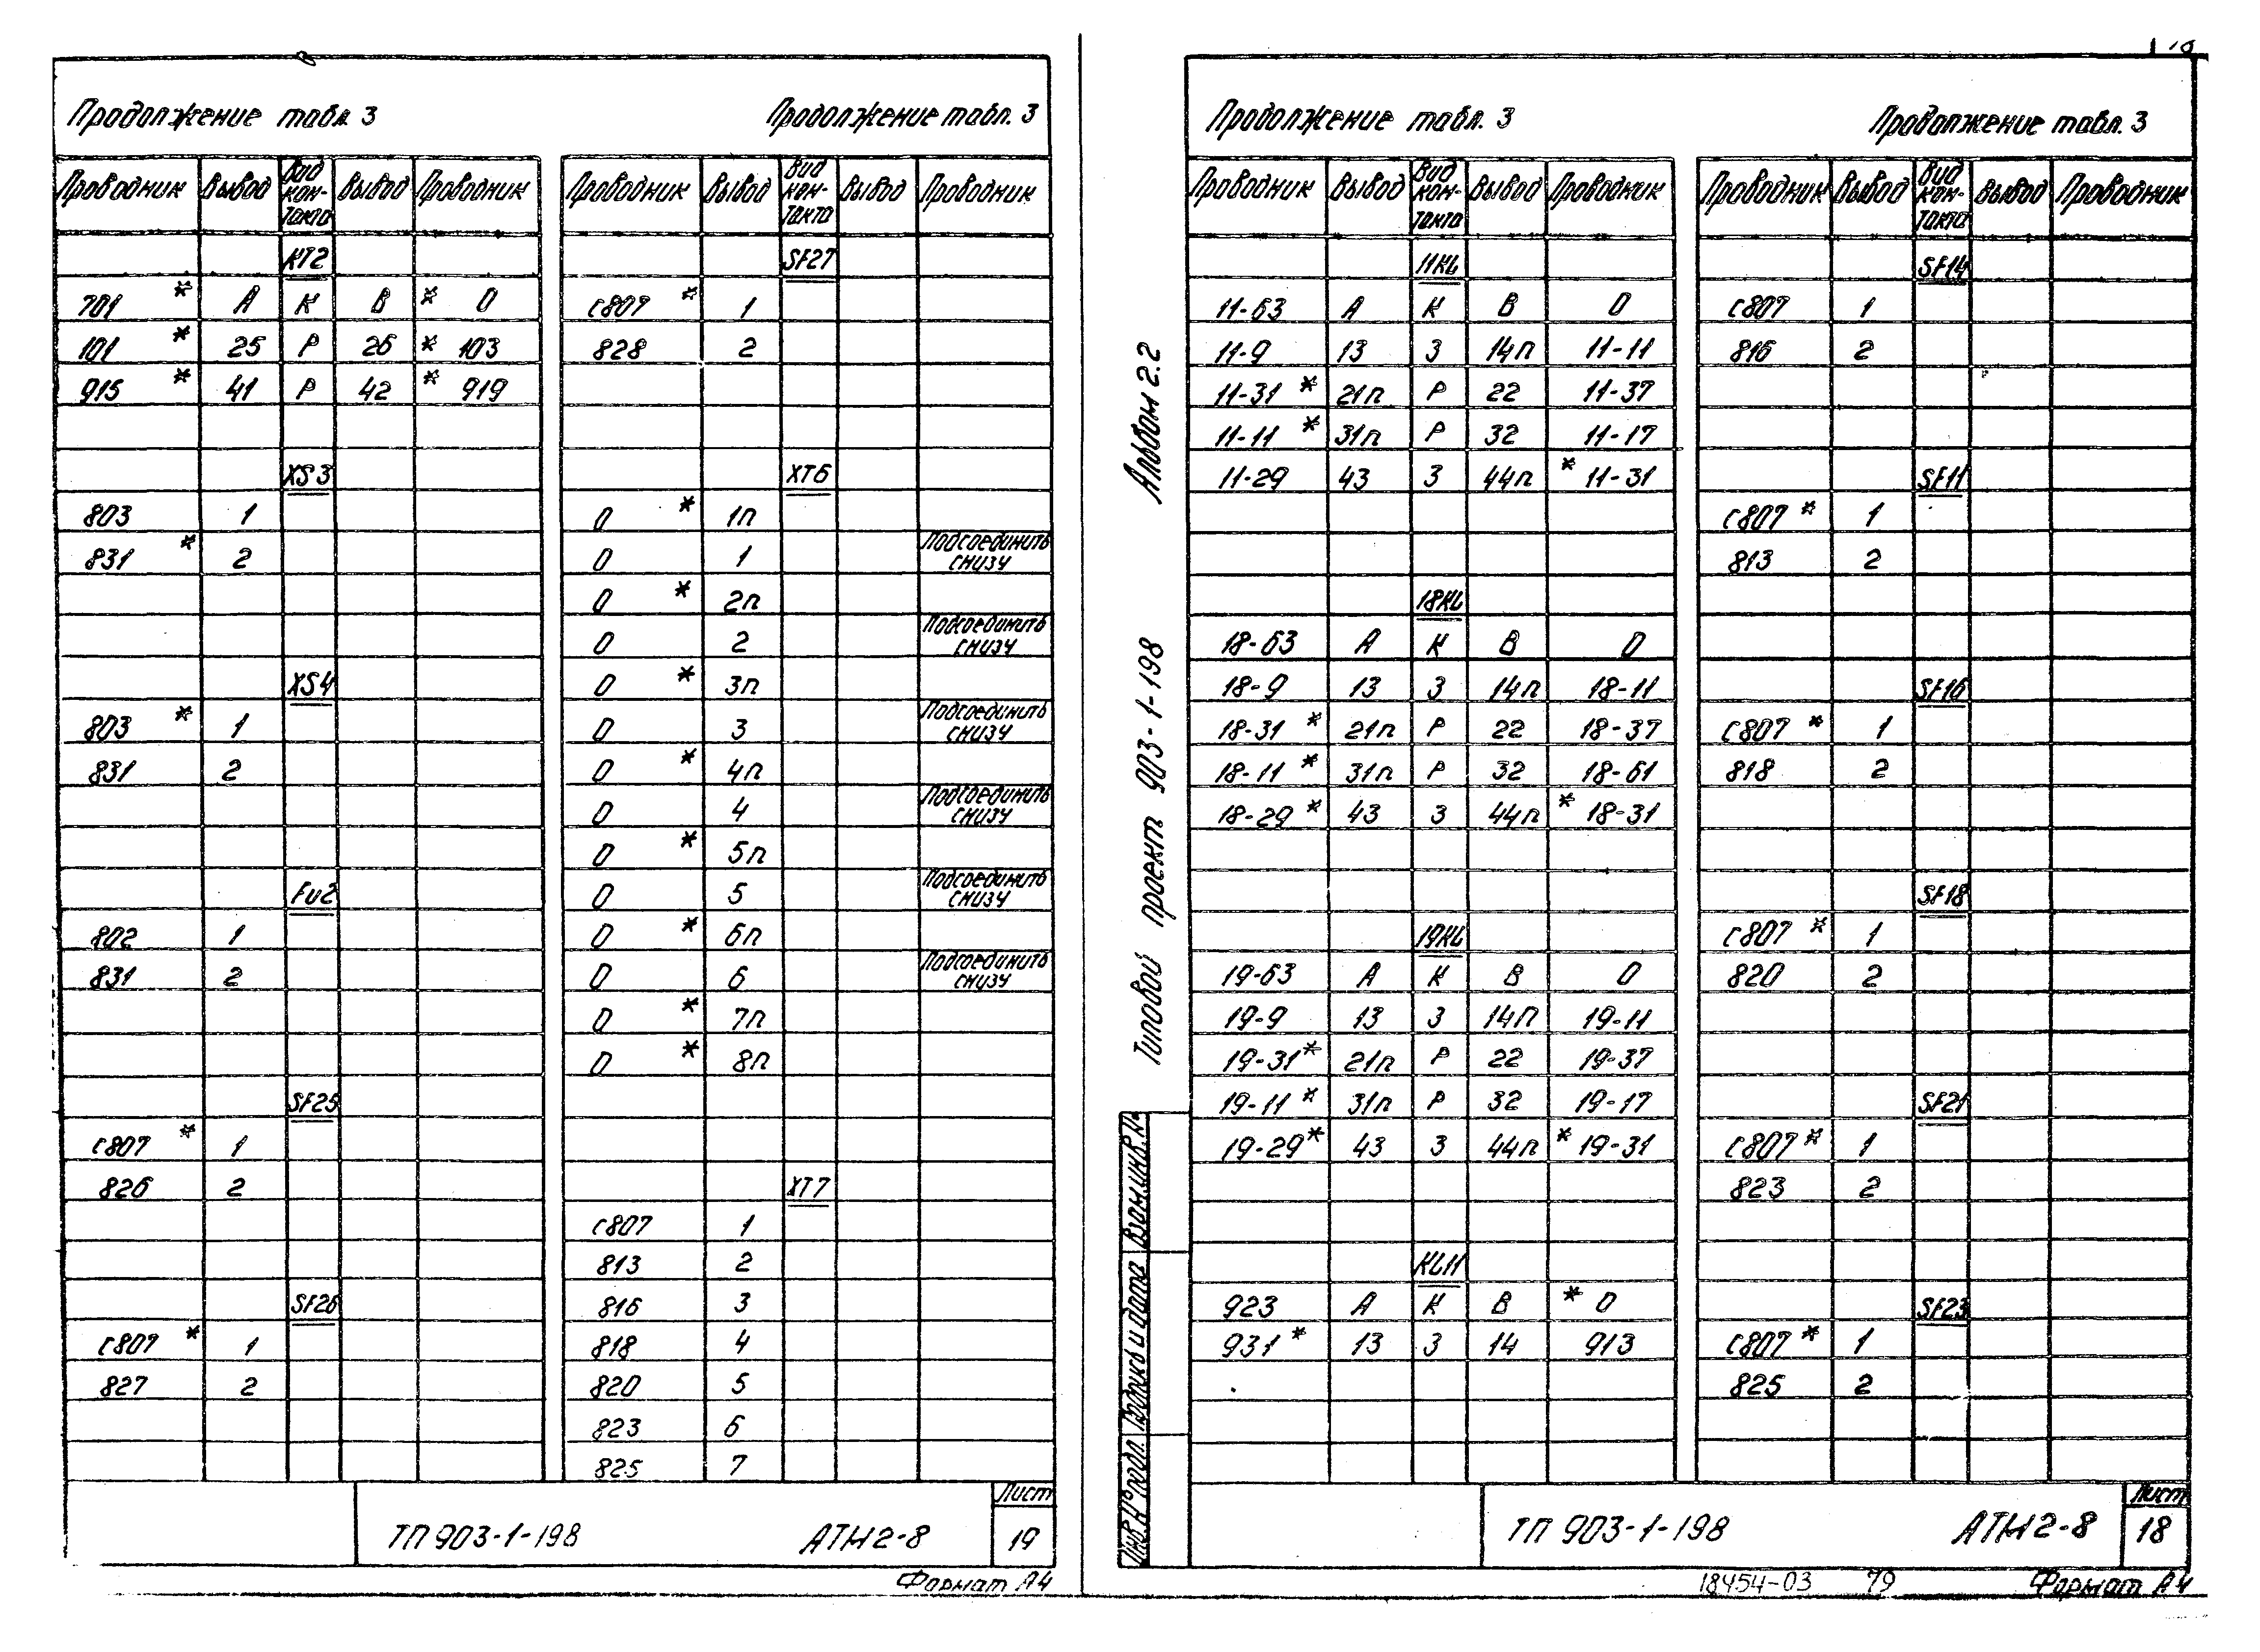 Продолжение табл. 3
Продолжение табл. 3
Проводник Вывод Вид кон-такта Вывод Проводник
KT2
701 * А К В * 0
101 * 25 Р 26 * 103
915 * 41 Р 42 * 919
XS3
803 1
831 * 2
XS4
803 * 1
831 2
FU2
802 1
831 2
SF25
С807 * 1
826 2
SF26
С807 * 1
827 2
Проводник Вывод Вид кон-такта Вывод Проводник
SF27
С807 * 1
828 2
XT6
0 * 1п
0 1 Подсоединить снизу
0 * 2п
0 2 Подсоединить снизу
0 * 3п
0 3 Подсоединить снизу
0 * 4п
0 4 Подсоединить снизу
0 * 5п
0 5 Подсоединить снизу
0 * 6п
0 6 Подсоединить снизу
0 * 7п
0 * 8п
XT7
С807 1
813 2
816 3
818 4
820 5
823 6
825 7
ТП 903-1-198 АТМ2-8 Лист 19
Формат А4
Альбом 2.2
Типовой проект 903-1-198
Взам.инв.№
Подпись и дата
Инв.№ подл.
Продолжение табл. 3
Продолжение табл. 3
Проводник Вывод Вид кон-такта Вывод Проводник
11KL
11-63 А К В 0
11-9 13 З 14п 11-11
11-31 * 21п Р 22 11-37
11-11 * 31п Р 32 11-17
11-29 43 З 44п * 11-31
18KL
18-63 А К В 0
18-9 13 З 14п 18-11
18-31 * 21п Р 22 18-37
18-11 * 31п Р 32 18-61
18-29 * 43 З 44п * 18-31
19KL
19-63 А К В 0
19-9 13 З 14п 19-11
19-31 * 21п Р 22 19-37
19-11 * 31п Р 32 19-17
19-29 * 43 З 44п * 19-31
KL11
923 А К В * 0
931 * 13 З 14 913
Проводник Вывод Вид кон-такта Вывод Проводник
SF14
С807 1
816 2
SF11
С807 * 1
813 2
SF16
С807 * 1
818 2
SF18
С807 * 1
820 2
SF21
С807 * 1
823 2
SF23
С807 * 1
825 2
ТП 903-1-198 АТМ2-8 Лист 18
18454-03 79 Формат А4